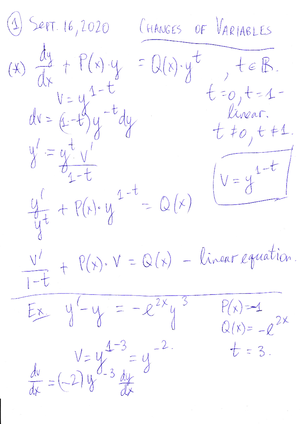 ① SEPT. 16, 2020 CHANGES OF VARIABLES
(*) dy/dx + P(x)·y = Q(x)·y^t, t∈ℝ.
v = y^(1-t) t=0, t=1 -
dv = (1-t)y^(-t) dy linear.
y' = y^t v' / (1-t) t≠0, t≠1.
y'/y^t + P(x)·y^(1-t) = Q(x) v = y^(1-t)
v'/(1-t) + P(x)·v = Q(x) - linear equation.
Ex. y' - y = -e^(2x) y^3 P(x)=-1
Q(x) = -e^(2x)
v = y^(1-3) = y^(-2). t = 3.
dv/dx = (-2) y^(-3) dy/dx